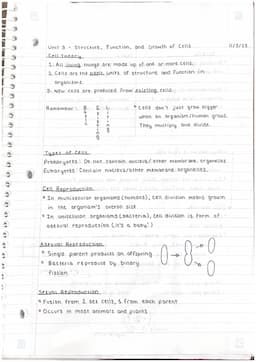 Unit 3 - Structure, Function, and Growth of Cells
Cell Theory
1. All living things are made up of one or more cells.
2. Cells are the basic units of structure and function in
organisms.
3. New cells are produced from existing cells.
Remember:
* Cells don't just grow bigger
when an organism/human grows.
They multiply and divide.
Types of Cells
Prokaryotes: Do not contain nucleus/other membrane organelles
Eukaryotes: Contain nucleus/other membrane organelles.
Cell Reproduction
* In multicellular organisms (humans), cell division means growth
in the organism's overall size
* In unicellular organisms (bacteria), cell division is form of
asexual reproduction (it's a baby!)
Asexual Reproduction
* Single parent produces an offspring
* Bacteria reproduce by binary
fission
Sexual Reproduction
* Fusion from 2 sex cells, 1 from each parent
* Occurs in most animals and plants